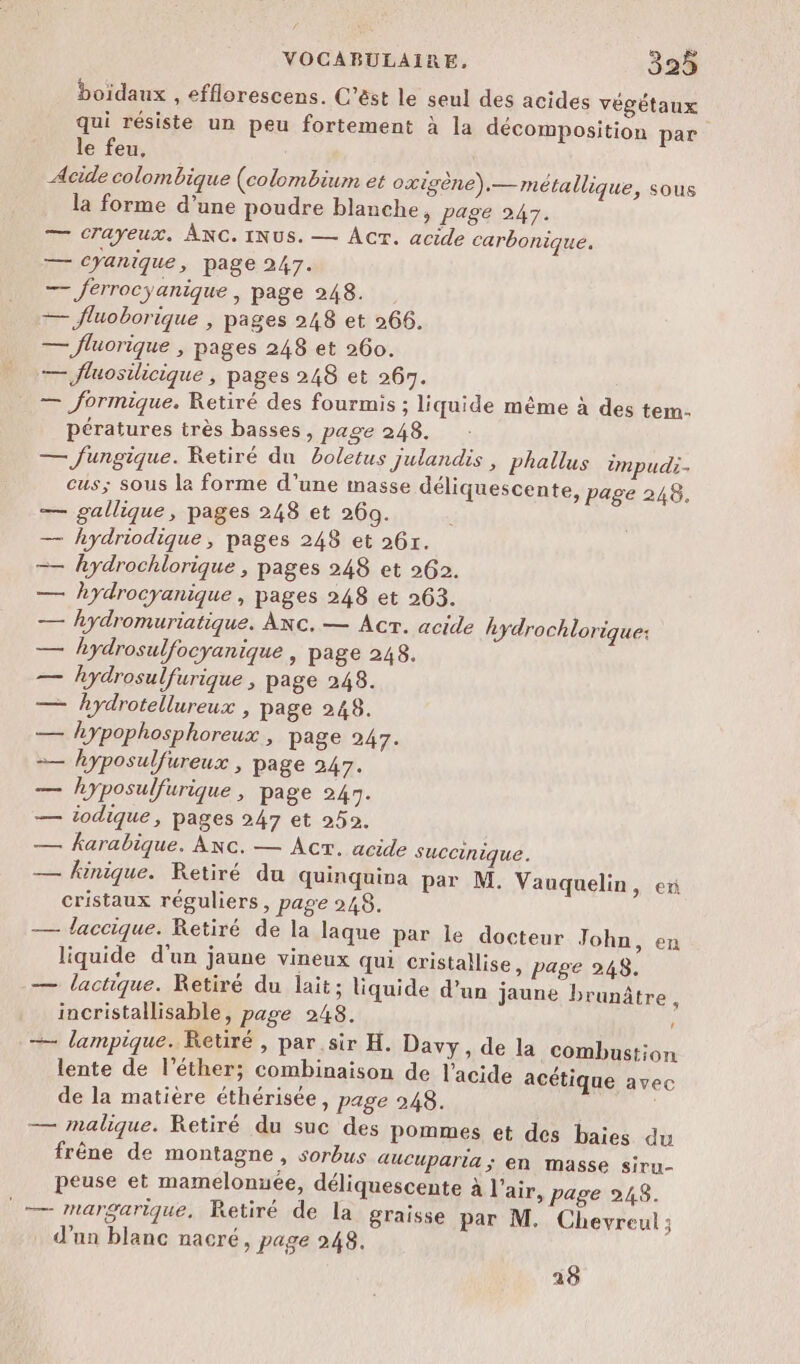 VOCABULAIRE. 325
boïdaux , efflorescens. C'ést le seul des acides végétaux
qui résiste un peu fortement à la décomposition par
le feu.
Acide colombique (colombium et oxigène).—métallique, sous
la forme d'une poudre blanche, page 247.
— crayeux. ANC. INUS. — ACT. acide carbonique.
— cyanique, page 247.
— ferrocyanique , page 248.
— fluoborique , pages 248 et 266.
— fluorique , pages 248 et 260.
— fluosilicique , pages 248 et 267.
— formique. Retiré des fourmis ; liquide même à des tem-
pératures très basses, page 248.
— fungique. Retiré du boletus julandis , phallus impudi-
cus; sous la forme d'une masse déliquescente, page 248.
— gallique, pages 248 et 269.
— hydriodique, pages 248 et 261.
— hydrochlorique , pages 248 et 262.
— hydrocyanique , pages 248 et 263.
— hydromuriatique. ANC. — ACT. acide hydrochlorique.
— hydrosulfocyanique , page 248.
— hydrosulfurique , page 248.
— hydrotellureux , page 248.
— hypophosphoreux , page 247.
— hyposulfureux , page 247.
— hyposulfurique , page 247.
— iodique, pages 247 et 252.
— karabique. ANC. — ACT. acide succinique.
— kinique. Retiré du quinquina par M. Vauquelin, en
cristaux réguliers, page 248.
— laccique. Retiré de la laque par le docteur John, en
liquide d'un jaune vineux qui cristallise, page 248.
— lactique. Retiré du lait; liquide d'un jaune brunâtre,
incristallisable, page 248.
— lampique. Retiré , par sir H. Davy, de la combustion
lente de l'éther; combinaison de l'acide acétique avec
de la matière éthérisée, page 248.
— malique. Retiré du suc des pommes et des baies du
frêne de montagne , sorbus aucuparia ; en masse siru-
peuse et mamelonuée, déliquescente à l'air, page 248.
— margarique. Retiré de la graisse par M. Chevreul ;
d'un blanc nacré, page 248.
28